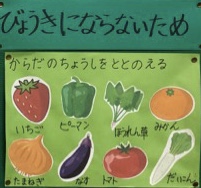 びょうきにならないため
からだのちょうしをととのえる
いちご ピーマン ほうれん草 みかん
たまねぎ なす トマト だいこん